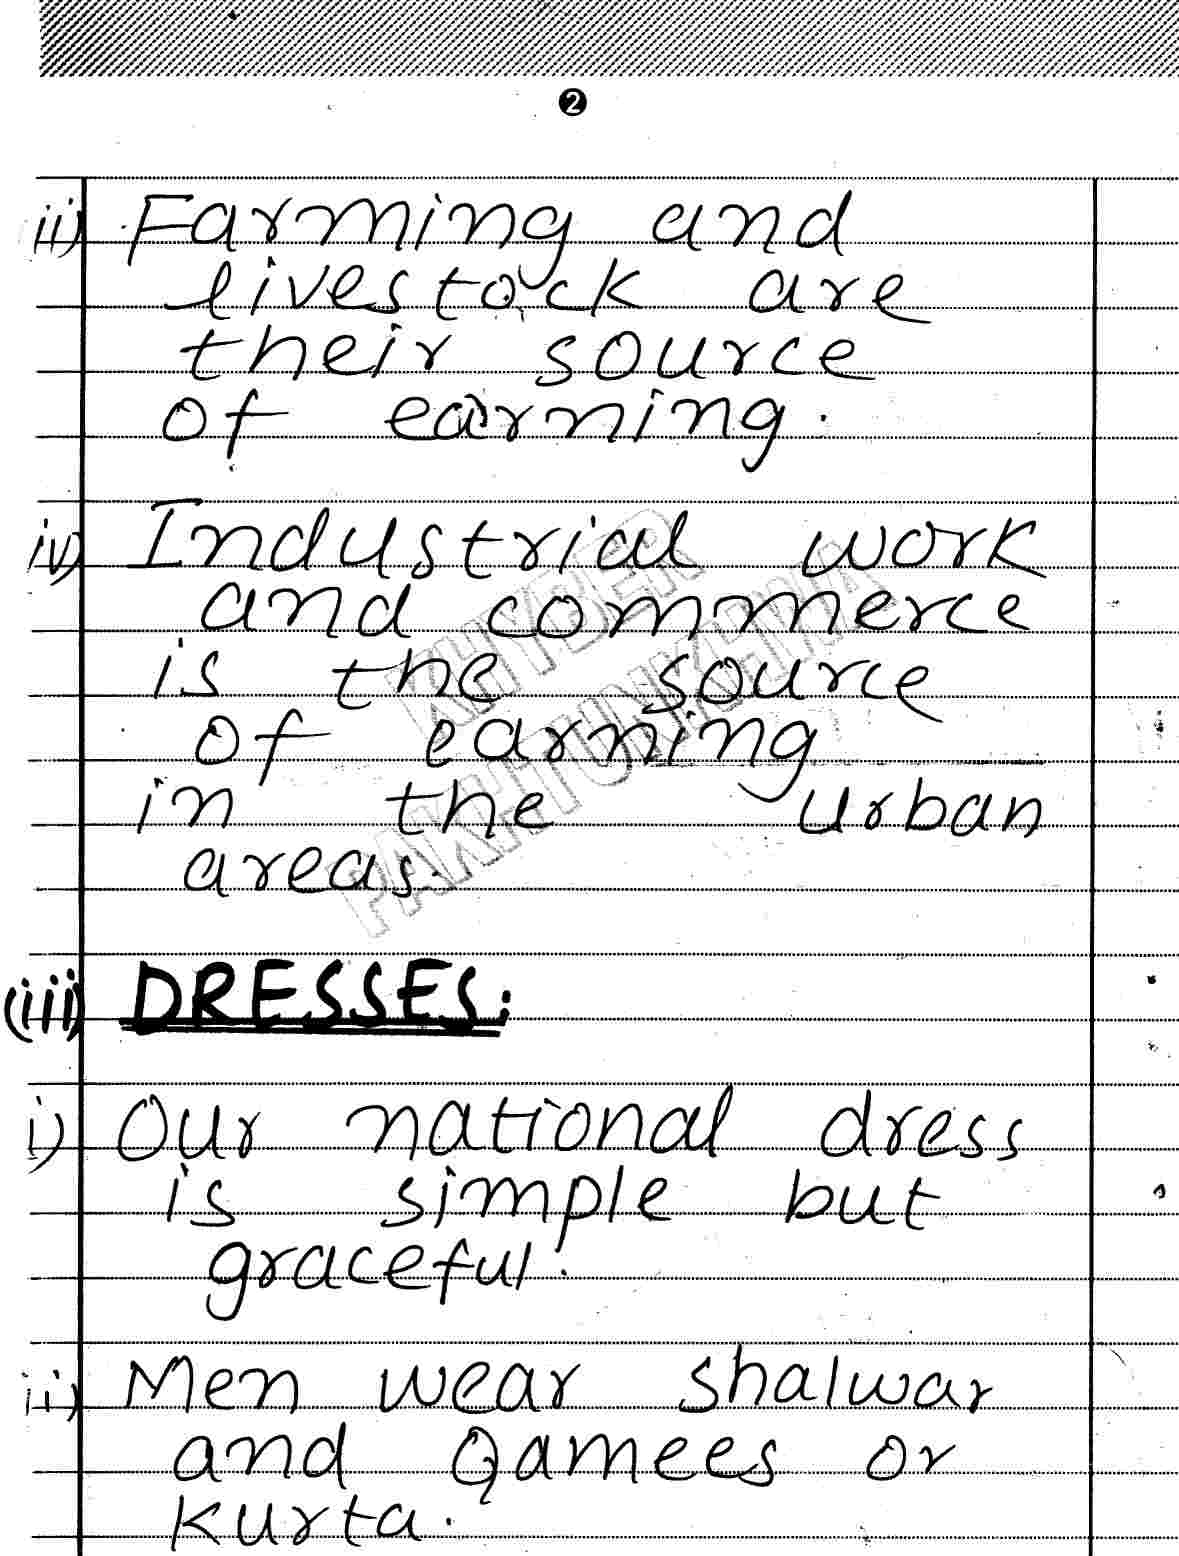 2
ii) Farming and
livestock are
their source
of earning.
iv) Industrial work
and commerce
is the source
of earning
in the urban
areas.
KHYBER
PAKHTUNKHWA
(iii) DRESSES:
i) Our national dress
is simple but
graceful.
ii) Men wear shalwar
and Qamees or
Kurta.